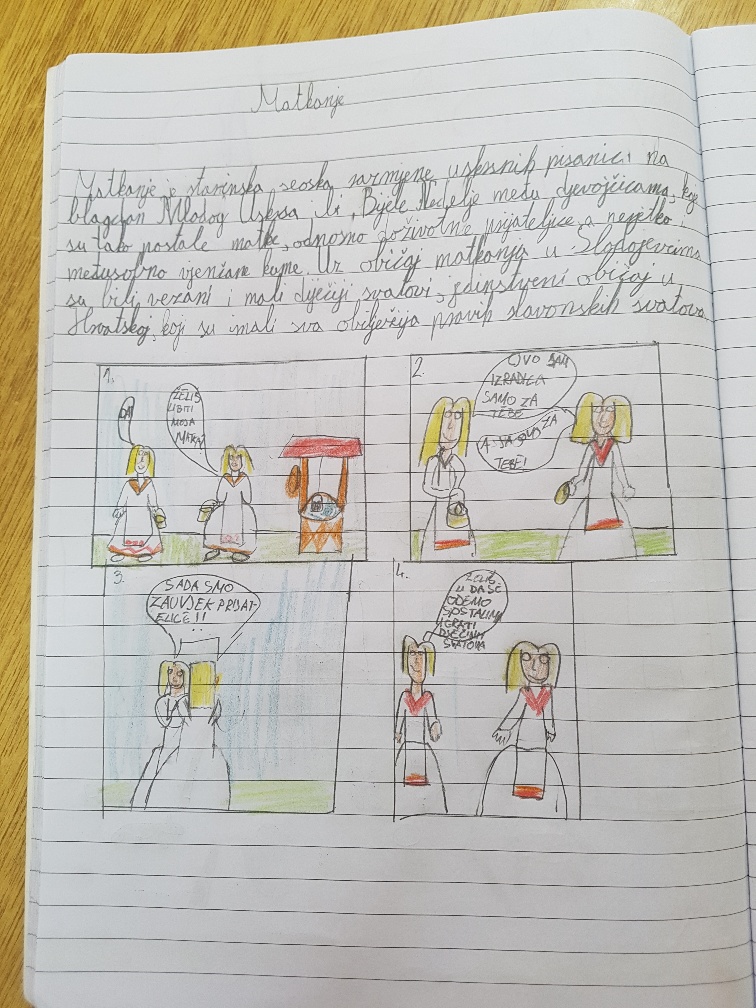 Matkanje
Matkanje je starinska seoska razmjene uskrsnih pisanica na
blagdan Mladog Uskrsa ili, Bijele Nedelje među djevojčicama, koje
su tako postale matke, odnosno doživotne prijateljice, a nerijetko i
međusobno vjenčane kume. Uz običaj matkanja u Slobojevcima
su bili vezani i mali dječiji svatovi, jedinstveni običaj u
Hrvatskoj, koji su imali sva obilježija pravih slavonskih svatova
1.
ŽELIŠ
LI BITI
MOJA
MATKA
2.
OVO SAM
IZRADILA
SAMO ZA
TEBE
A JA SAMO ZA
TEBE!
3.
SADA SMO
ZAUVJEK PRIJAT-
ELICE!!
4.
ŽELIŠ
LI DA SĆ
IDEMO
SOSTALIMA
IGRATI
DJEČIJIH
SVATOVA